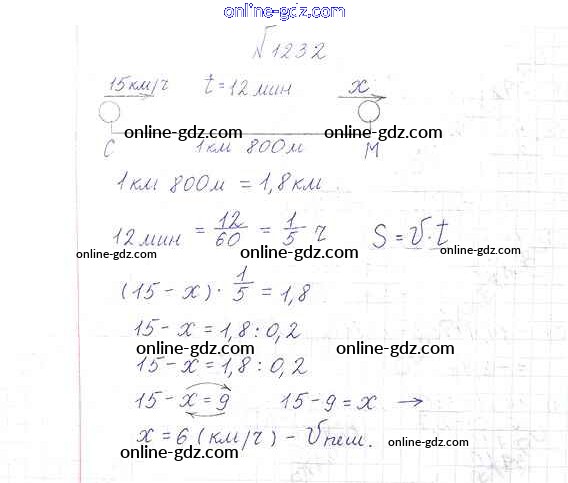 online-gdz.com
№1232
15км/ч t=12мин x
online-gdz.com online-gdz.com
С 1км 800м М
1км 800м = 1,8км
12мин = 12/60 = 1/5 ч S = v·t
online-gdz.com online-gdz.com online-gdz.com
(15-x)·1/5 = 1,8
online-gdz.com
15-x=1,8:0,2
online-gdz.com online-gdz.com
15-x=1,8:0,2
15-x=9 15-9=x →
online-gdz.com online-gdz.com
x=6(км/ч)-v пеш.
online-gdz.com
online-gdz.com